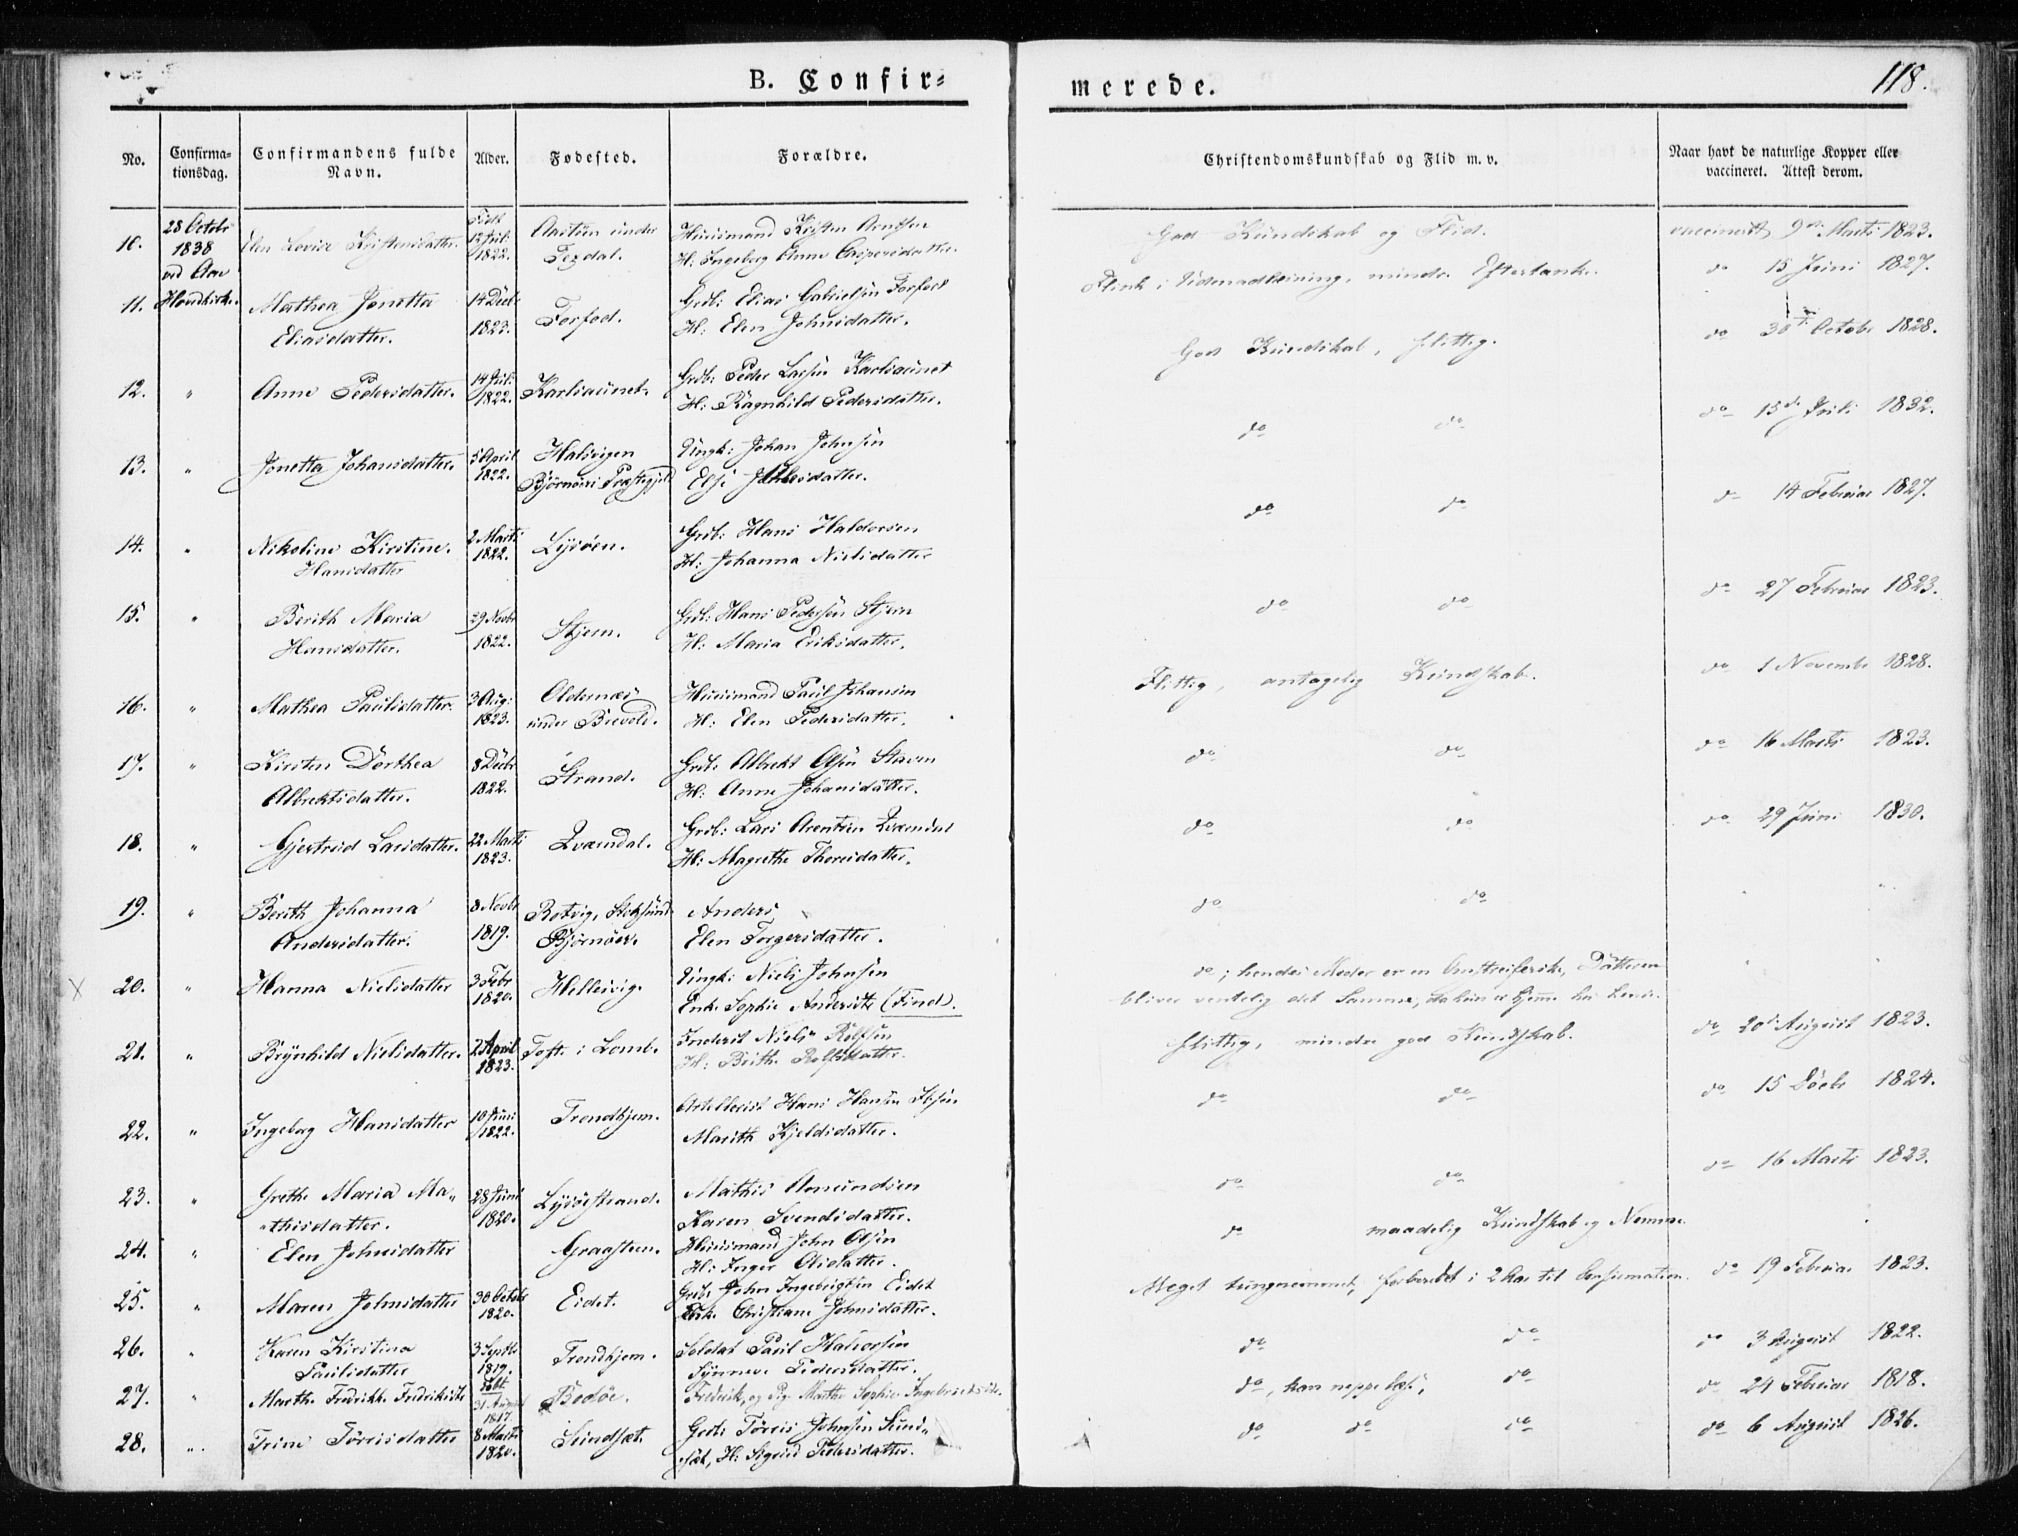 B. Confir=
merede.
118.
No.
Confirma-
tionsdag.
Confirmandens fulde
Navn.
Alder.
Fødested.
Forældre.
Christendomskundskab og Flid m. v.
Naar havt de naturlige Kopper eller
vaccineret. Attest derom.
10.
28 Octobr
1838
ved Aae
Hovedkirke.
Elen Lovise Kristensdatter.
Født
12 Juli
1822.
under
Fezdal.
Huusmand Kristen Arntsen
H: Ingeborg Anne Caspersdatter.
God Kundskab og Flid.
vaccineret 9de Marts 1823.
11.
Mathea Jonetta
Eliasdatter.
14 Decbr
1823.
Forfod.
Grdb: Elias Gabrielsen Forfod
H: Elen Johnsdatter.
Flink i Udenadlæsning, mindre Eftertanke.
do 15 Juni 1827.
12.
"
Anne Pedersdatter.
14 Juli
1822.
Karliaunet.
Grdb: Peder Larsen Karliaunet
H: Ragnhild Pedersdatter.
God Kundskab, flittig.
do 30te Octobr 1828.
13.
"
Jonetta Johansdatter.
5 April
1822.
Halsvigen
Bjørnøers Præstegjeld
Ungk: Johan Johnsen
Elsi datter.
do do
do 15de Juli 1832.
14.
"
Nikoline Kirstine.
Hansdatter
2 Marts
1822.
Lysøen.
Grdb: Hans Haldorsen
H: Johanna Nielsdatter
do do
do 14 Februar 1827.
15.
"
Berith Maria
Hansdatter.
29 Novbr
1822.
Stjern.
Grdb: Hans Pedersen Stjern
H: Maria Eriksdatter.
do do
do 27 Februar 1823.
16.
"
Mathea Paulsdatter.
3 Aug:
1823.
Oldernæs
under Brevold.
Huusmand Paul Johansen
H: Elen Pedersdatter.
Flittig, antagelig Kundskab.
do 1 Novembr 1828.
17.
"
Kirsten Dorthea
Albrektsdatter.
8 Decbr
1822.
Strand.
Grdb: Albrekt Olsen Staven
H: Anne Johansdatter.
do do
do 16 Marts 1823.
18.
"
Gjertrud Larsdatter.
22 Marts
1823.
Qvændal.
Grdb: Lars Arentsen Qvændal
H: Magrethe Thoresdatter.
do do
do 29 Juni 1830.
19.
"
Berith Johanna
Andersdatter.
8 Novbr
1819.
Rotvig, Stoksund
Bjørnøer.
Anders
Elen Torgersdatter.
do do
" "
20.
"
Hanna Nielsdatter
3 Febr
1820.
Hellesvig.
Ungk: Niels Johnsen
Enke Sophie Andersdtr (Find).
do; hendes Moder er en Omstreiferske, Datteren
bliver ventelig det Samme, da hun er hjemme hos hende.
21.
"
Brynhild Nielsdatter.
2 April
1823.
Toft i Lomb.
Inderst Niels Rolfsen
H: Berith Rolfsdatter.
flittig, mindre god Kundskab.
do 20de August 1823.
22.
"
Ingeborg Hansdatter
10 Juni
1822.
Trondhjem.
Artellerist Hans Hansen
Marith Kjeldsdatter.
do do
do 15 Decbr 1824.
23.
"
Grethe Maria Ma-
-thisdatter.
28 Juni
1820.
Lysøestrand.
Mathis Amundsen
Karen Svendsdatter.
do do
do 16 Marts 1823.
24.
"
Elen Johnsdatter
Graasteen.
Huusmand John Olsen
H: Inger Olsdatter.
do maadelig Kundskab og Nemme.
25.
"
Maren Johnsdatter
30 Octobr
1820.
Eidet.
Grdb: John Ingebrigtsen Eidet
Christiane Johnsdatter.
Meget tungnemmet, forberedet i 2 Aar til Confirmation.
do 19 Februar 1823.
26.
"
Karen Kirstina
Paulsdatter
3 Septbr
1819.
Trondhjem.
Soldat Paul Halvorsen
Synneve Pedersdatter.
do do
do 3 August 1822.
27.
"
Marthe Fredrikke Fredriksdtr
31 August
1817.
Bodøe.
Frederik, og Pige Marthe Sophie
do, kan neppe læse, do
do 24 Februar 1818.
28.
"
Trine Torrisdatter
8 Marts
1820.
Sundsæt.
Grdb: Torris Johnsen Sund-
-sæt, H: Sigrid Pedersdatter.
do do do
do 6 August 1826.